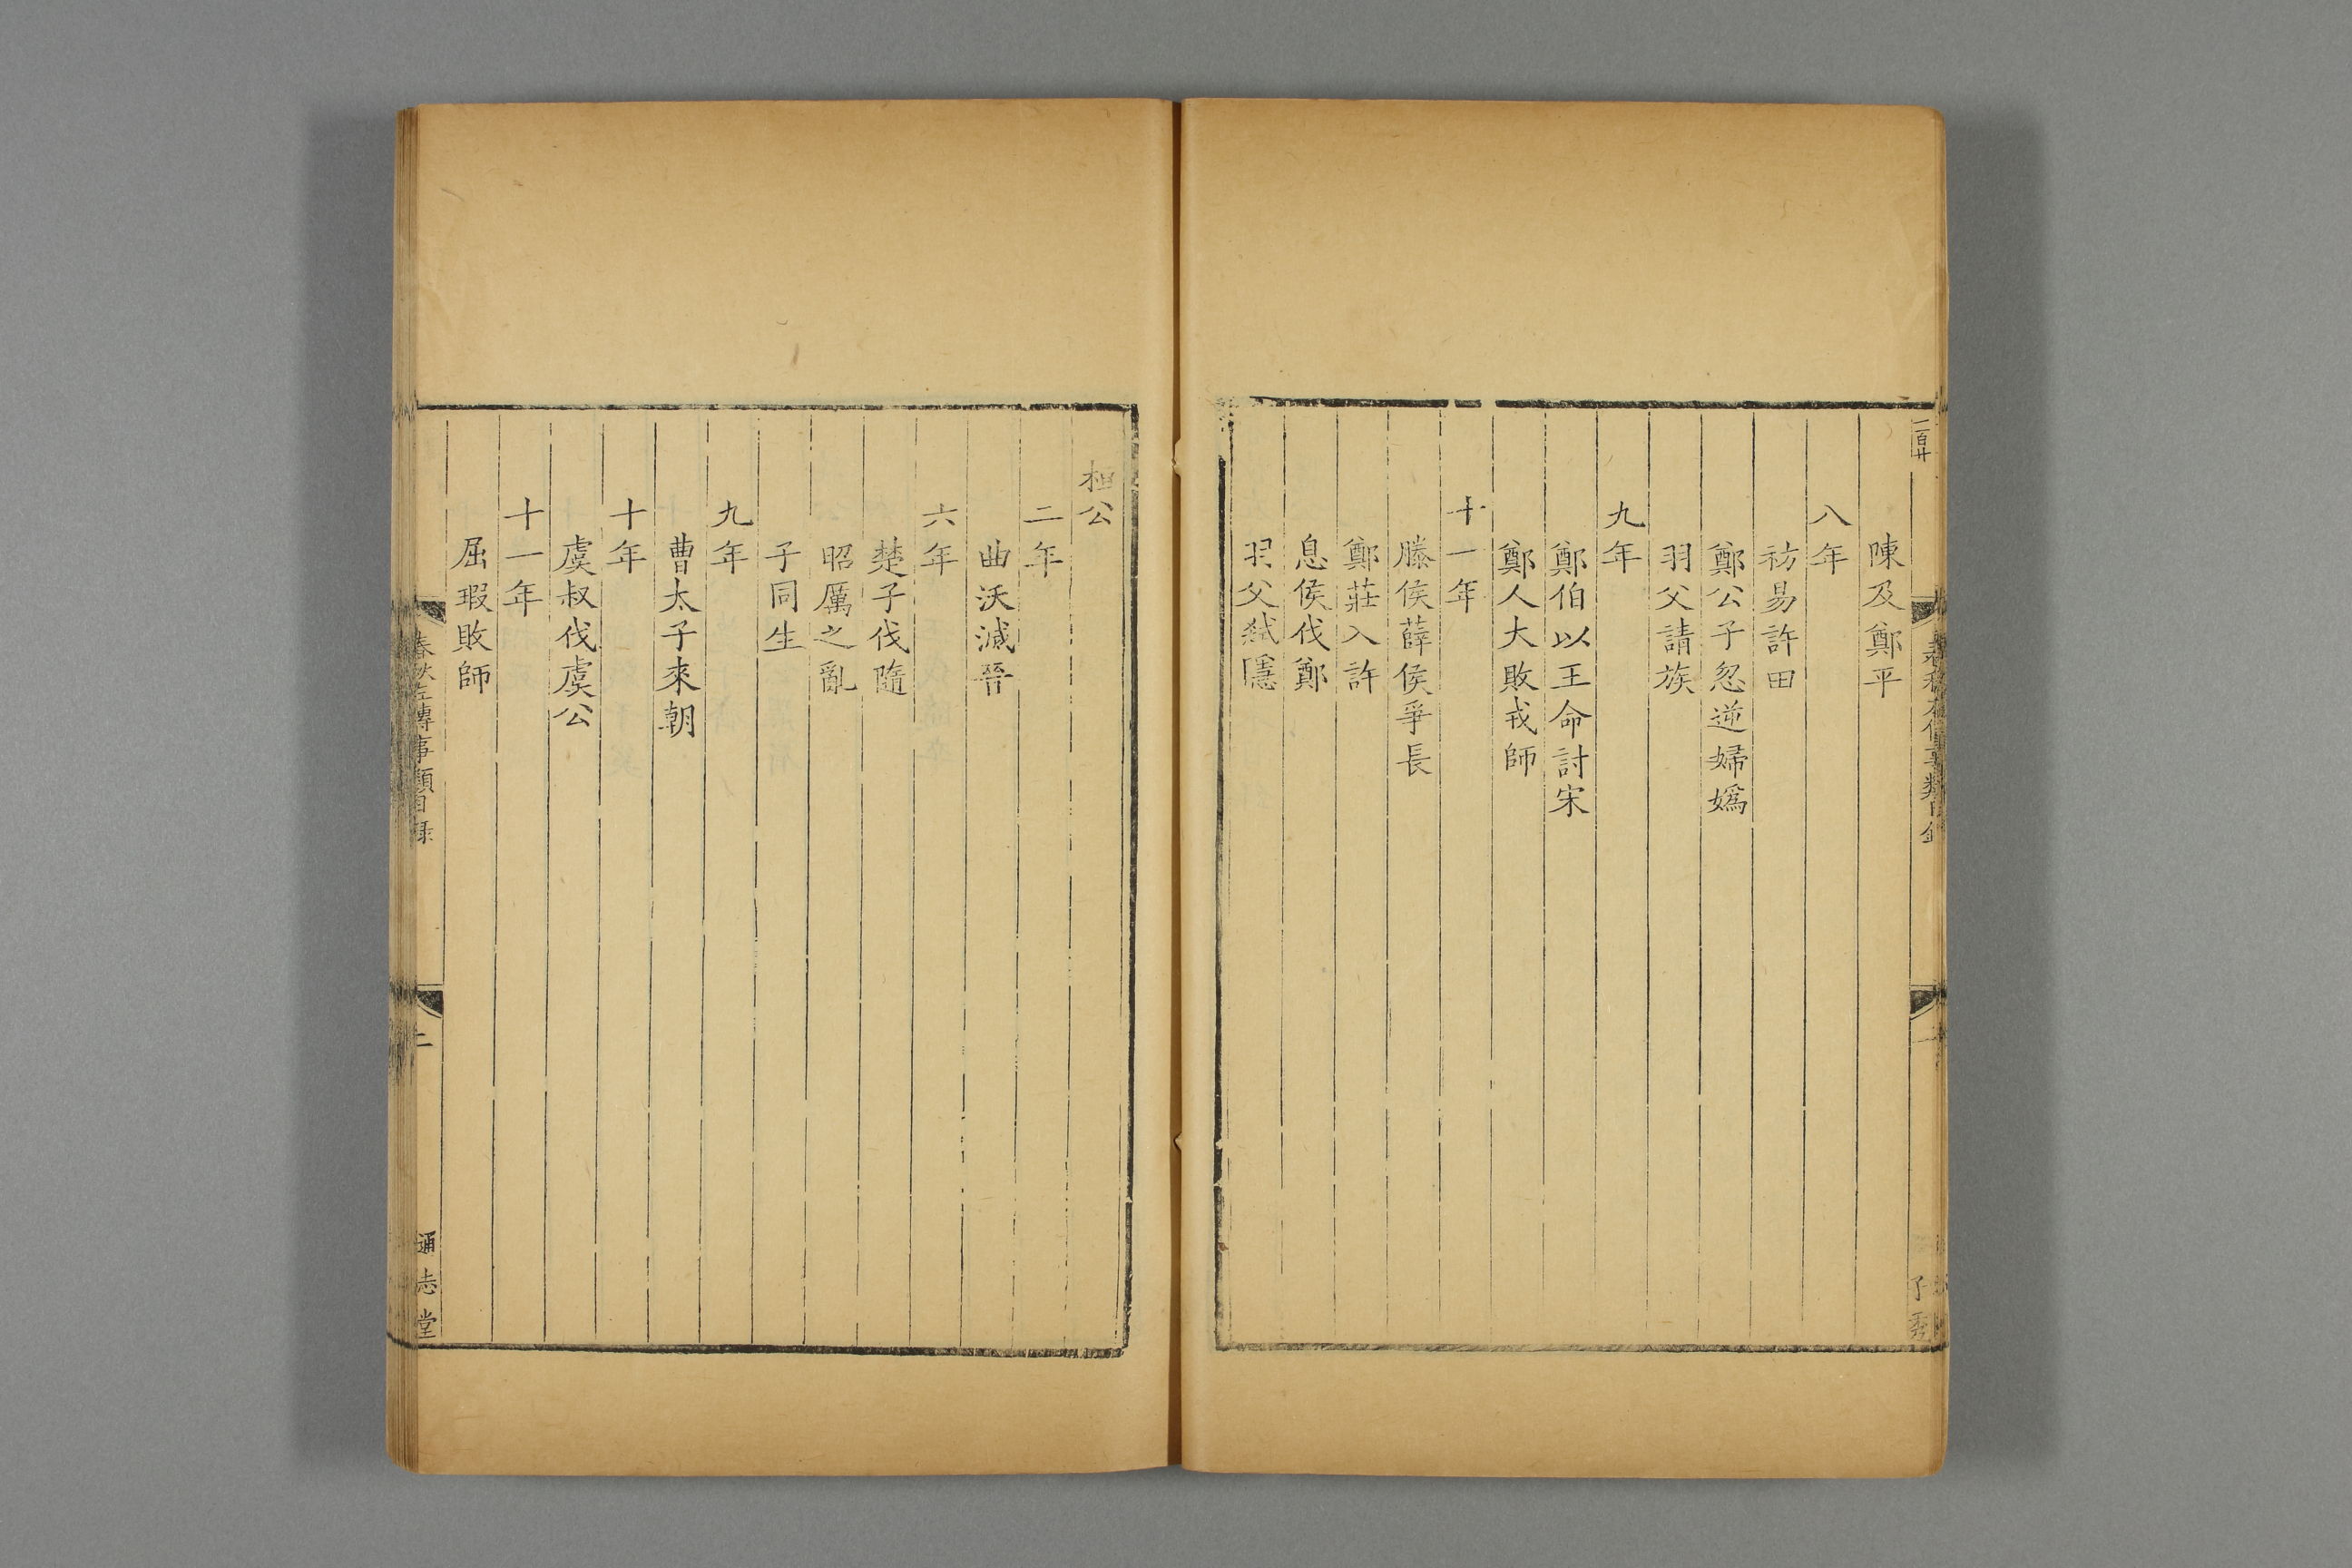 陳及鄭平
八年
祊易許田
鄭公子忽逆婦嬀
羽父請族
九年
鄭伯以王命討宋
鄭人大敗戎師
十一年
滕侯薛侯爭長
鄭莊入許
息侯伐鄭
羽父弑隱
桓公
二年
曲沃滅晉
六年
楚子伐隨
昭厲之亂
子同生
九年
曹太子來朝
十年
虞叔伐虞公
十一年
屈瑕敗師
春秋左傳事類目錄
二
通志堂